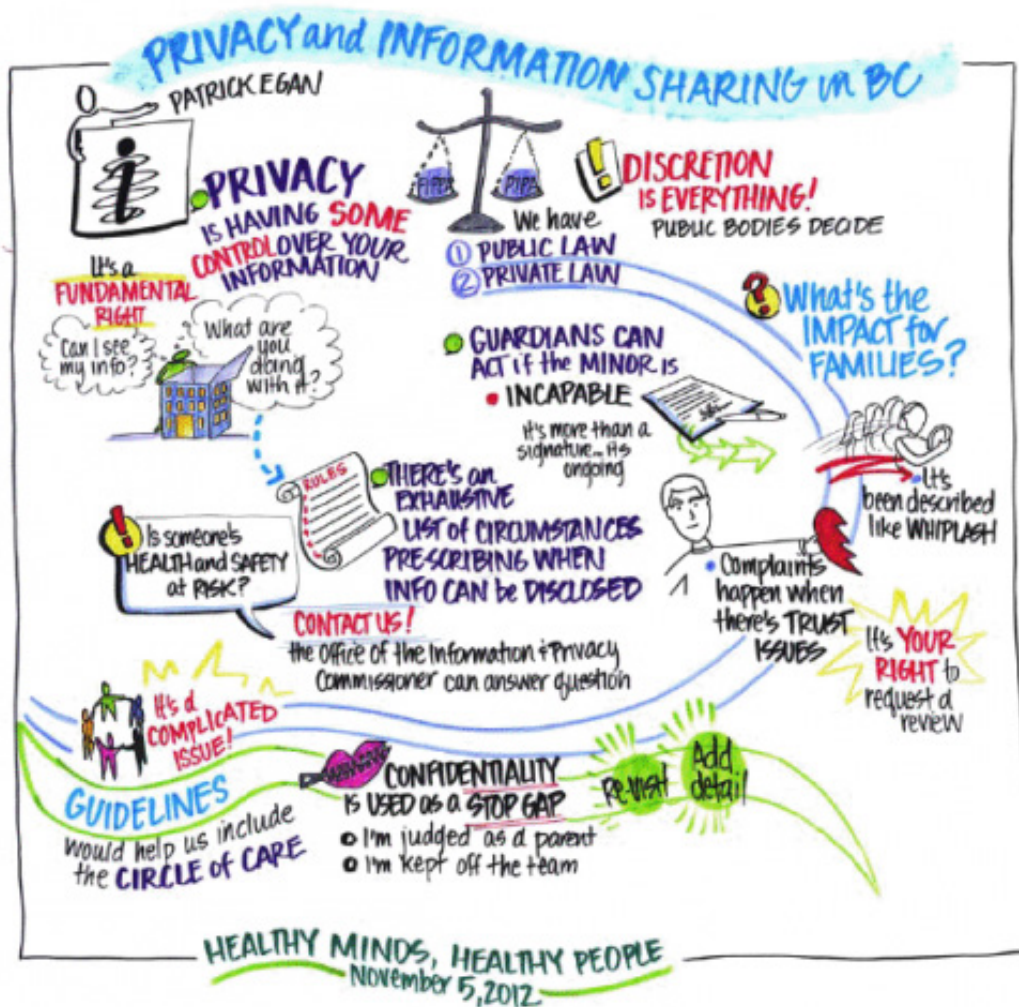 PRIVACY and INFORMATION SHARING in BC
PATRICK EGAN
i
PRIVACY
IS HAVING SOME
CONTROL OVER YOUR
INFORMATION
It's a
FUNDAMENTAL
RIGHT
Can I see
my info?
What are
you
doing
with it?
FIPPA
PIPA
We have
1 PUBLIC LAW
2 PRIVATE LAW
! DISCRETION
IS EVERYTHING!
PUBLIC BODIES DECIDE
? What's the
IMPACT for
FAMILIES?
GUARDIANS CAN
ACT if the MINOR is
• INCAPABLE
It's more than a
signature... its
ongoing
• It's
been described
like WHIPLASH
RULES
THERE'S an
EXHAUSTIVE
LIST of CIRCUMSTANCES
PRESCRIBING WHEN
INFO CAN be DISCLOSED
! Is someone's
HEALTH and SAFETY
at RISK?
CONTACT US!
the Office of the Information + Privacy
Commissioner can answer question
• Complaints
happen when
there's TRUST
ISSUES
It's YOUR
RIGHT to
request a
review
It's a
COMPLICATED
ISSUE!
GUIDELINES
would help us include
the CIRCLE of CARE
CONFIDENTIALITY
is USED as a STOP GAP
o I'm judged as a parent
o I'm kept off the team
Re-visit
Add
detail
HEALTHY MINDS, HEALTHY PEOPLE
November 5, 2012